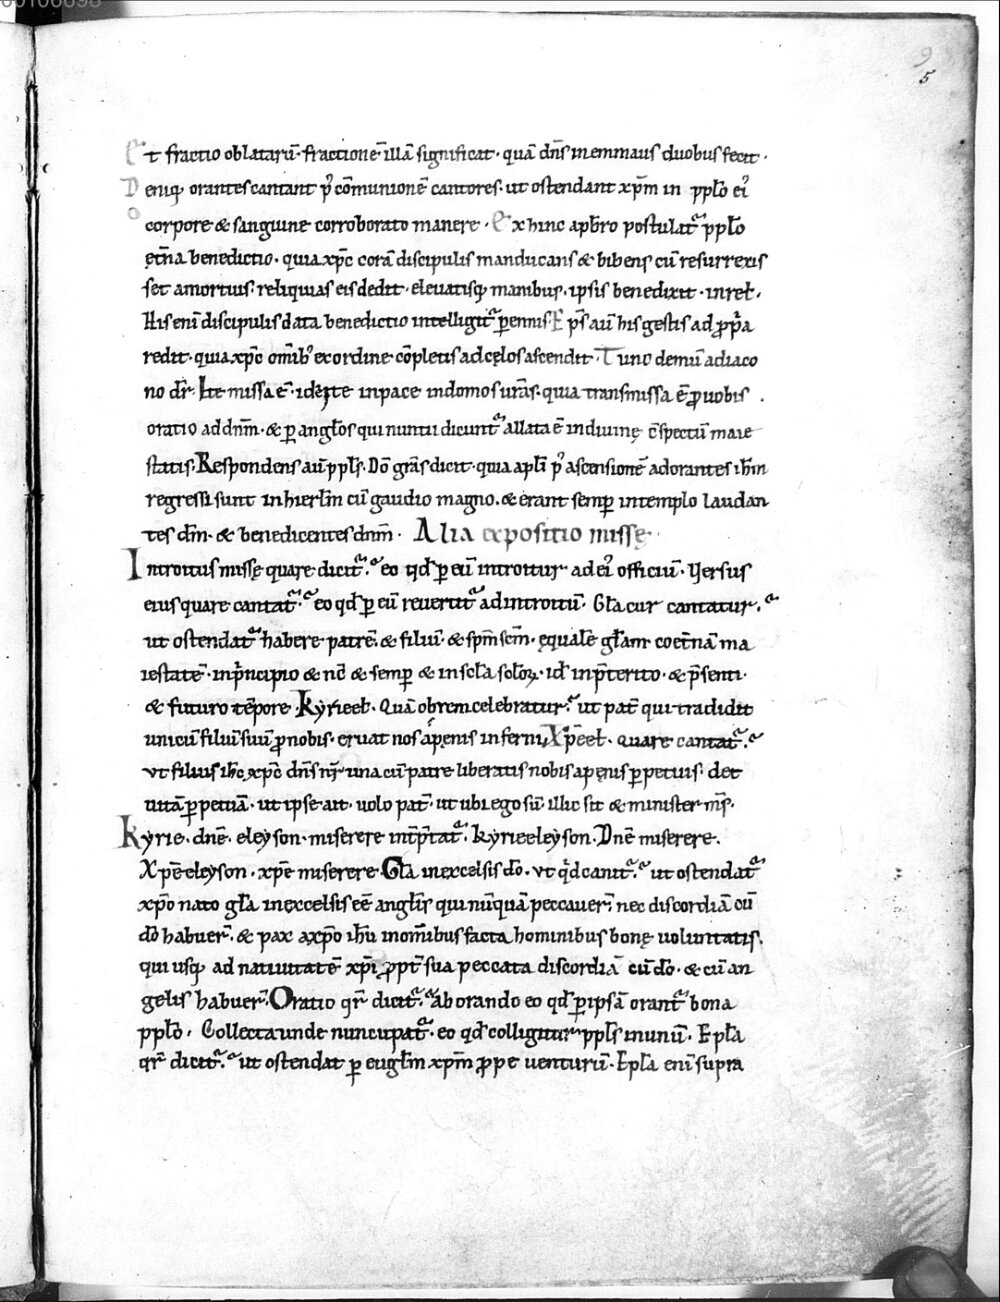 00106698
9
5
Et fractio oblatarū· fractionē illā significat· quā dn̄s inemmaus duobus fecit·
Deniq; orantes cantant p̓ cōmunionē cantores· ut ostendant xp̄m in pplo ei᷒
corpore & sanguine corroborato manere· Exhinc apbr̄o postulat᷑ ppl̄o
et̄na benedictio· quia xp̄c corā discipulis manducans & bibens cū resurrexis
set amortuis· reliquias eis dedit· eleuatisq; manibus· ipsis benedixit· inrel̄·
His eni discipulis data benedictio intelligit᷑ ꝑennis· Ep̄s aū his gestis ad ꝓp̓a
redit· quia xp̄c omīb; ex ordine cōpletis ad cęlos ascendit· Tunc demū adiaco
no dr̄· Ite missa ē· id est ite inpace indomos urās· quia transmissa ē ꝓ uobis·
oratio ad dn̄m· & ꝑ angl̄os qui nuntii dicunt᷑ allata ē indiuinę c̄spectū maie
statis· Respondens aū ppl̄s· Dō grās dicit· quia apl̄i p̓ ascensionē adorantes ih̄m
regressi sunt inhierl̄m cū gaudio magno· & erant semꝑ intemplo laudan
tes dm̄· & benedicentes dnm̄· Alia expositio missę·
Introitus missę quare dicit᷑· eo qd̄ ꝑ eū introitur ad ei᷒ officiū· Versus
eius quare cantat᷑· eo qd̄ ꝑ eū reuertit᷑ ad introitū· Gl̄a cur cantatur·
ut ostendat᷑ habere patrē· & filiū· & sp̄m sc̄m· ęqualē gl̄am coet̄nā ma
iestatē· inp̓ncipio & nc̄ & semꝑ & in scl̄a scl̄oꝝ· id inp̄terito· & p̄senti·
& futuro tēpore· Kyrieel̄· Quā obrem celebratur· ut pat̄ qui tradidit
unicū filiū suū ꝓ nobis· eruat nos a pęnis inferni· Xp̄eel̄· quare cantat᷑·
Vt filius ih̄c xp̄c dn̄s nr̄ una cū patre liberatis nobis apęnis ꝑpetuis· det
uitā ꝑpetuā· ut ipse ait· uolo pat̄· ut ubi ego sū· illic sit & minister m̄s·
Kyrie· dnē· eleyson· miserere int̄p̄tat᷑· Kyrieeleyson· Dnē miserere·
Xp̄e eleyson· xp̄e miserere· Gl̄a inexcelsis dō· Vt qd̄ canit᷑· ut ostendat᷑
xp̄o nato gl̄a inexcelsis eē angl̄is qui nūquā peccauer̄· nec discordiā cū
dō habuer̄· & pax a xp̄o ih̄u inomībus facta hominibus bonę uoluntatis·
qui usq; ad natiuitatē xp̄i ꝓpt̄ sua peccata discordiā cū dō· & cū an
gelis habuer̄· Oratio qr̄ dicit᷑· Ab orando eo qd̄ ꝑ ipsā orant᷑ bona
ppl̄o· Collecta unde nuncupat᷑· eo qd̄ colligitur ppl̄s inunū· Epl̄a
qr̄ dicit᷑· ut ostendat ꝑ eugl̄m xp̄m ꝓpe uenturū· Epl̄a eni supra